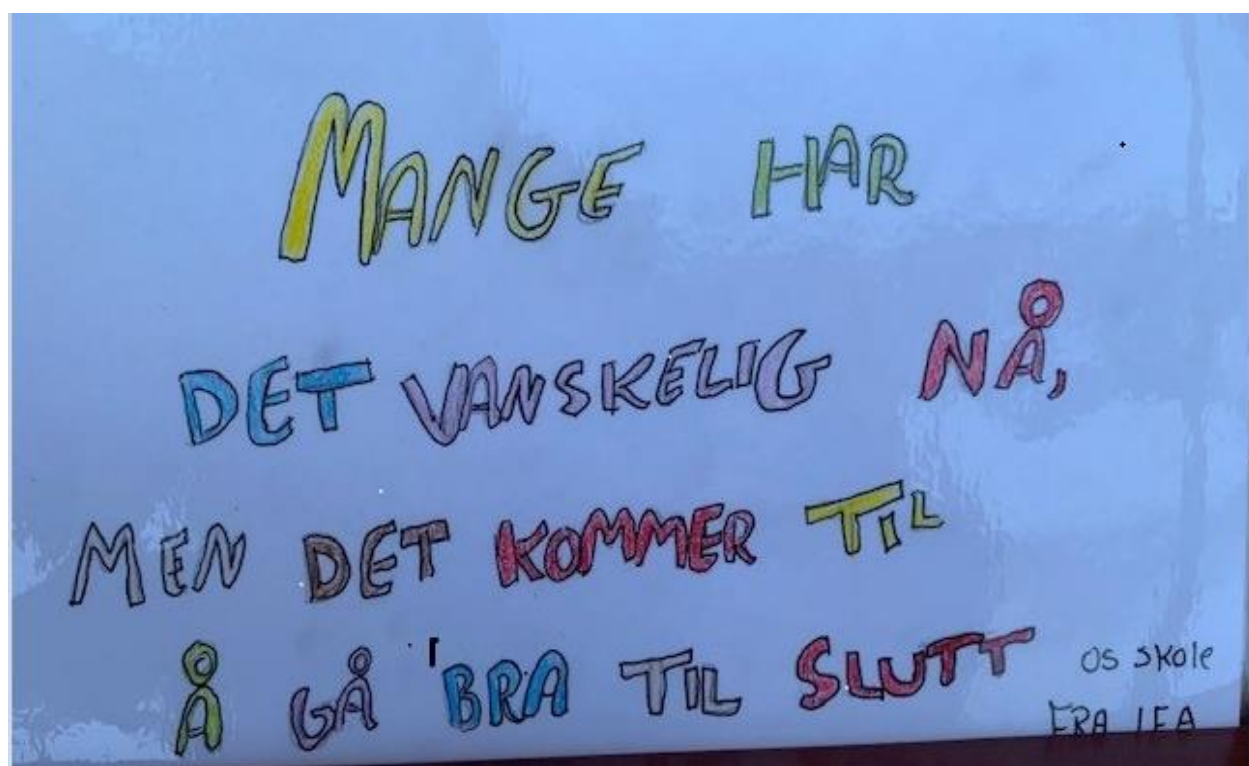 MANGE HAR
DET VANSKELIG NÅ,
MEN DET KOMMER TIL
Å GÅ BRA TIL SLUTT
OS SKOLE
FRA LEA